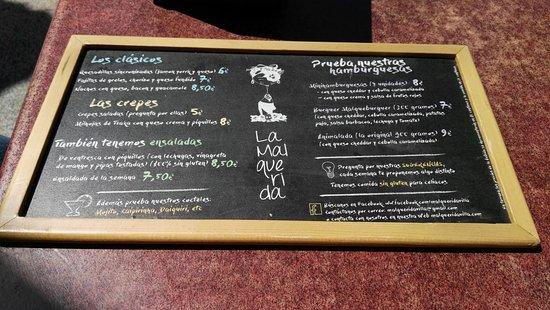 Los clásicos
Quesadillas sincronizadas (jamon york y queso) 6€
Fajitas de grelos, chorizo y queso fundido 7€
Nachos con queso, bacon y guacamole 8,50€
Las crepes
Crepes saladas (pregunta por ellas) 5€
de Trasgo con queso crema y piquillos 8€
También tenemos ensaladas
De ventresca con piquillos (con lechugas, vinagreta
de mango y pipas tostadas) (sin gluten) 8,50€
Ensalada de la semana 7,50€
Además prueba nuestros cocteles:
Mojito, Caipirinha, Daiquiri, etc
La
Mal
que
rida
Prueba nuestras
hamburguesas
Minihamburguesas (4 unidades) 8€
- con queso cheddar y cebolla caramelizada
- con queso crema y salsa de frutos rojos
Burguer Malqueburguer (200 gramos) 7€
(con queso cheddar, cebolla caramelizada, patatas
paja, salsa barbacoa, lechuga y tomate)
Animalada (la original 300 gramos) 9€
(con queso cheddar y cebolla caramelizada)
Pregunta por nuestras
cada semana te proponemos algo distinto
Tenemos comida sin gluten para celiacos
Búscanos en Facebook
Contáctanos por correo:
o contacta con nosotros en nuestra web